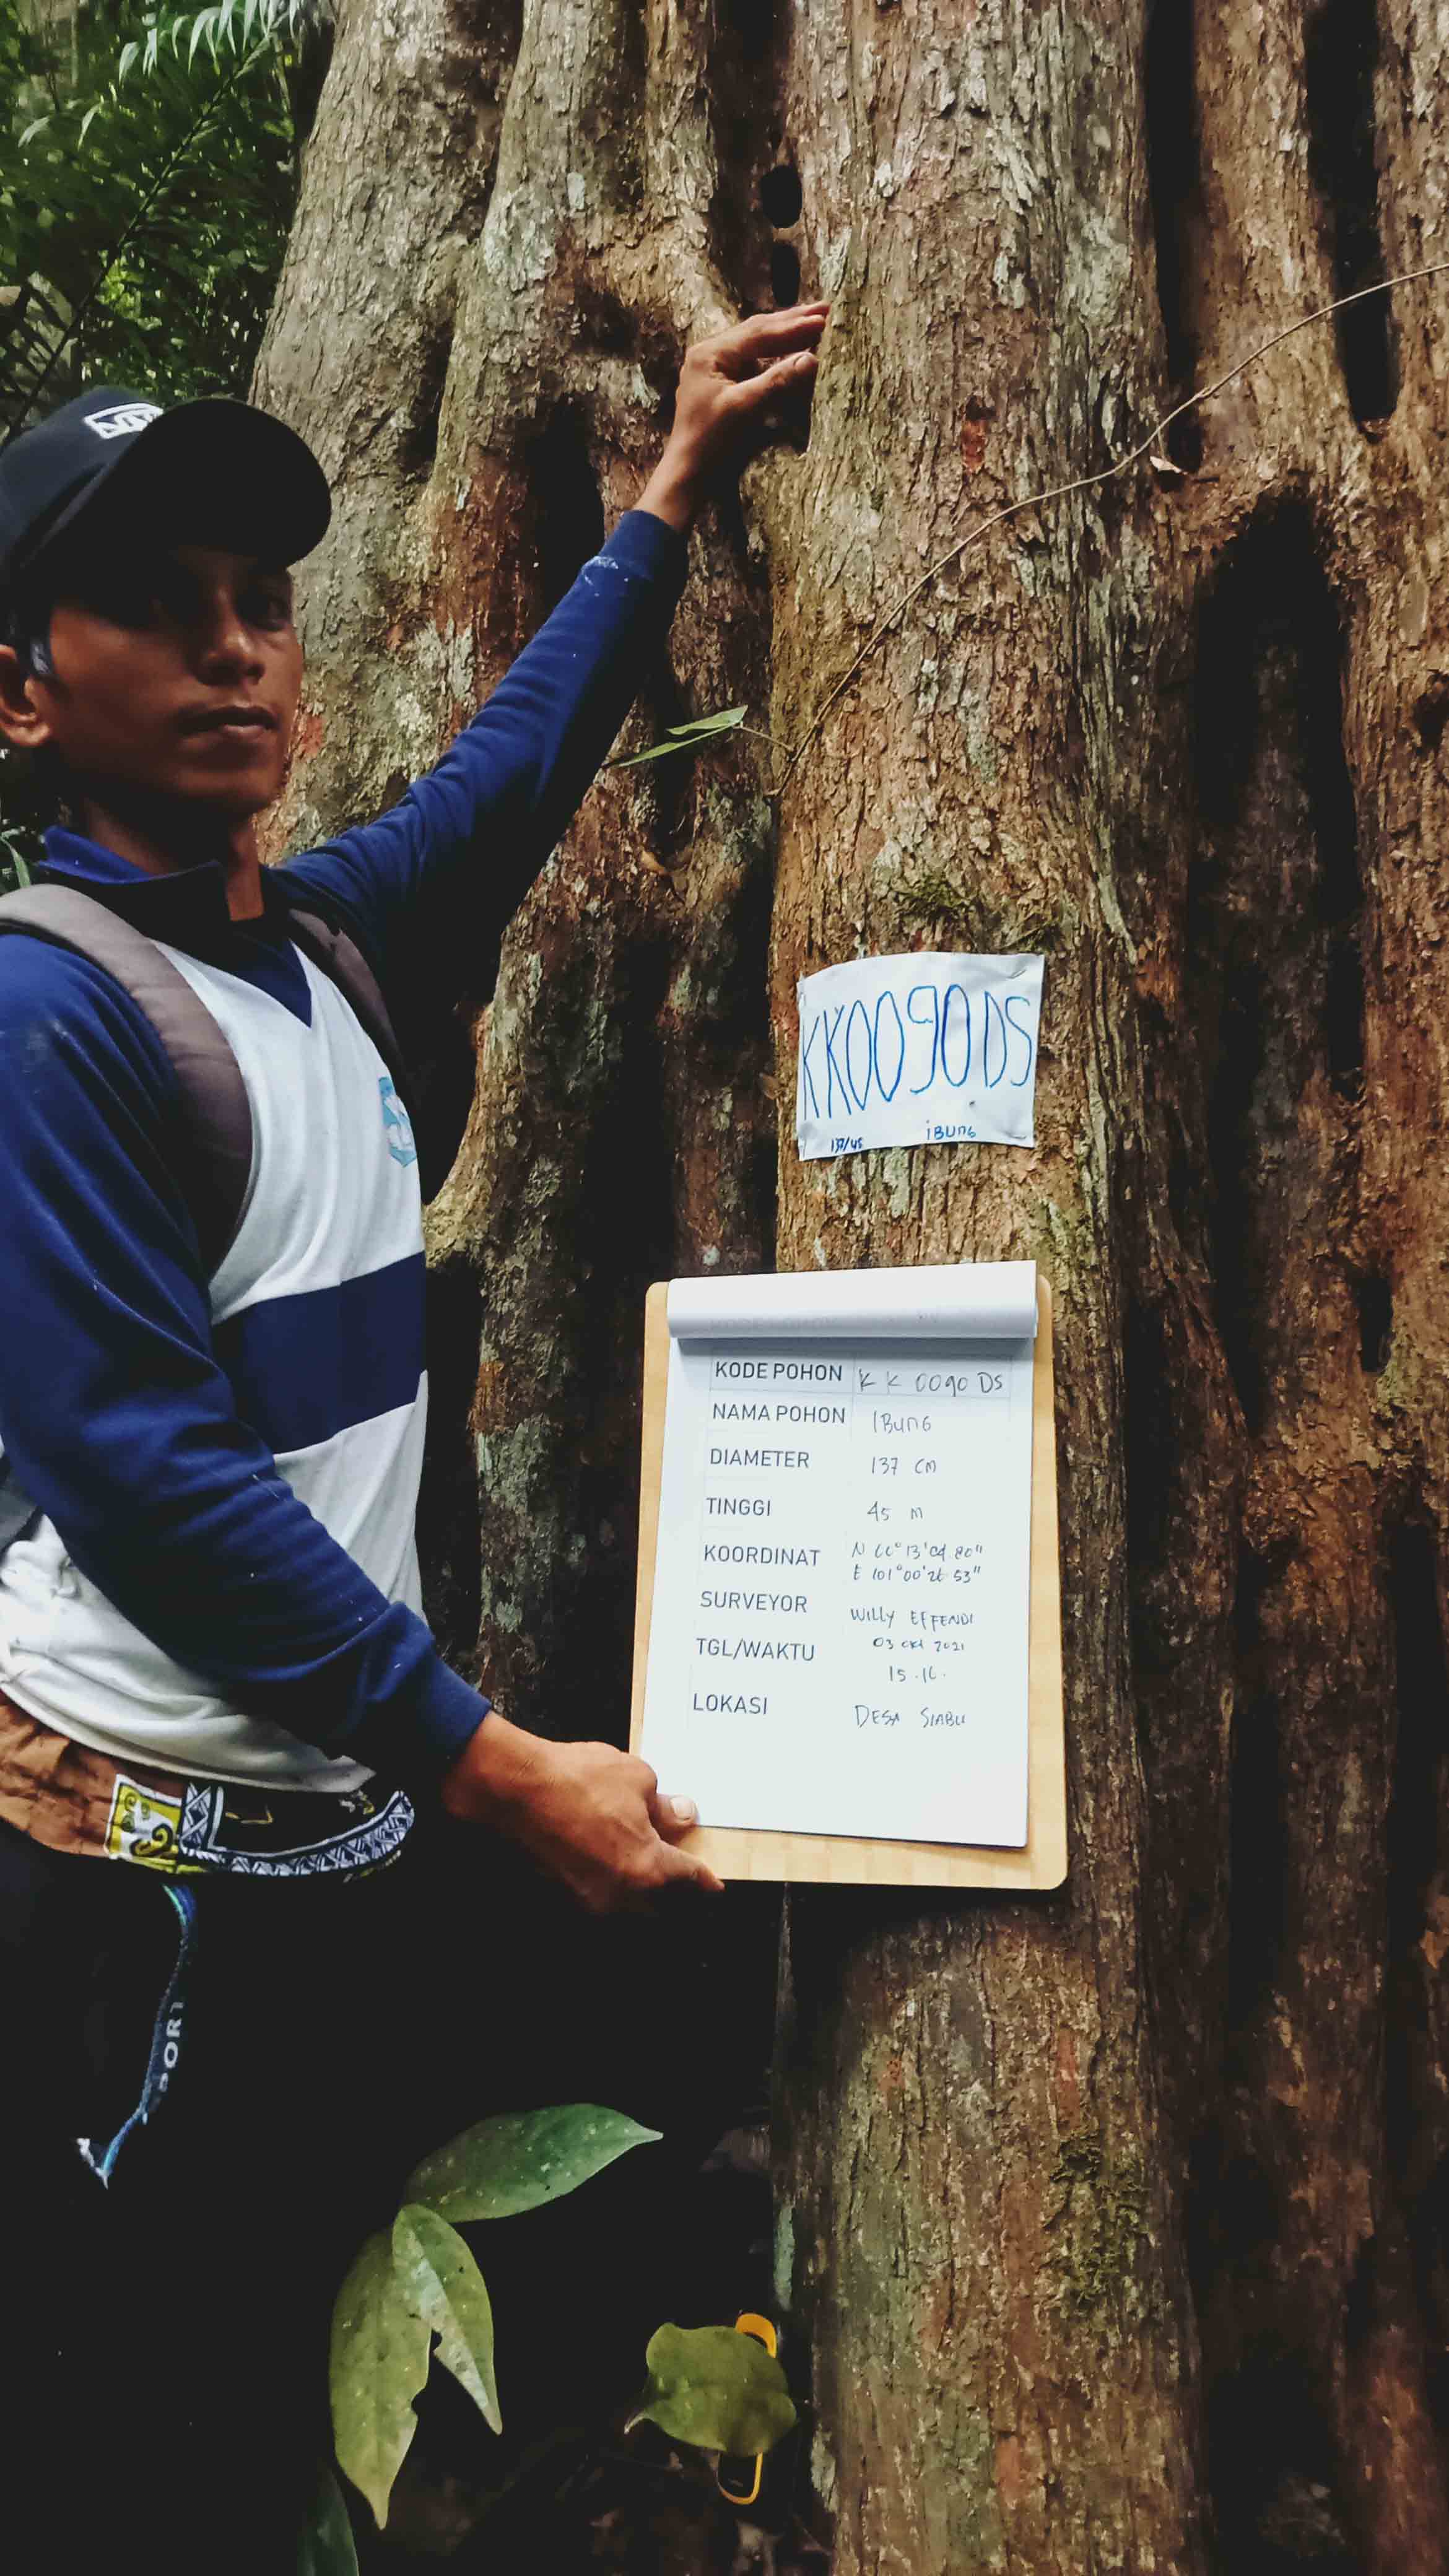 KK0090DS
137/45 iBUNG
KODE POHON KK 0090 DS
NAMA POHON IBUNG
DIAMETER 137 CM
TINGGI 45 M
KOORDINAT N 00° 13' 04.80"
E 101° 00' 26.53"
SURVEYOR WILLY EFFENDI
TGL/WAKTU 03 Okt 2021
15.16.
LOKASI DESA SIABU
PORT